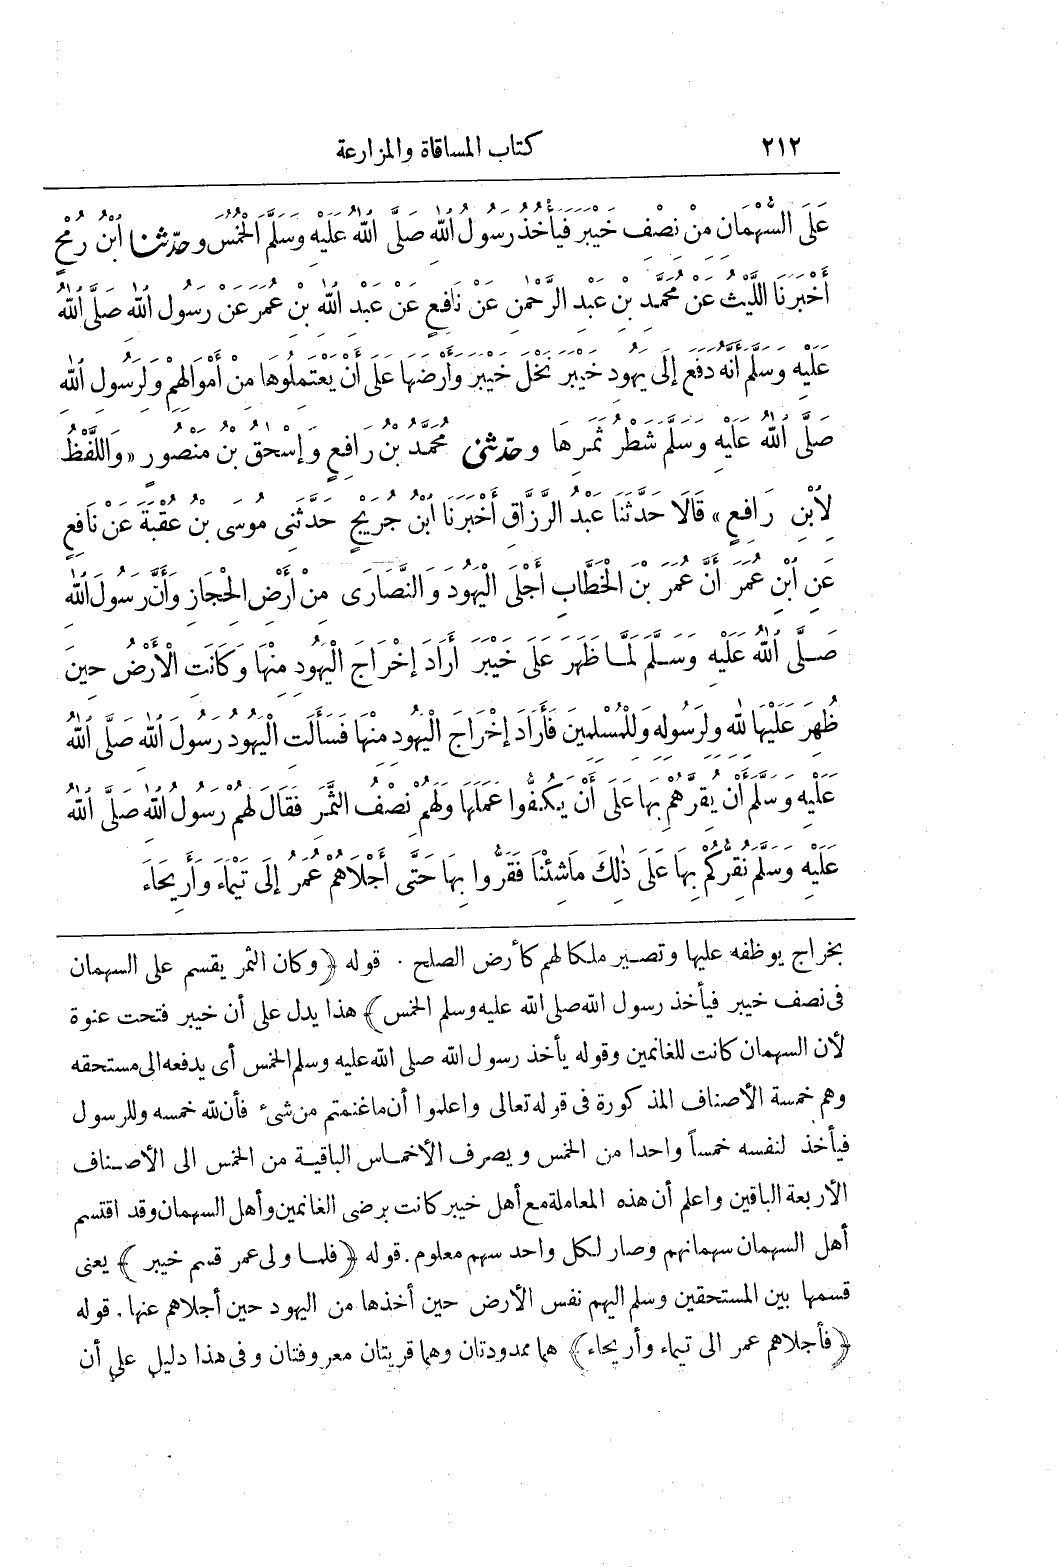 ٢١٢ كتاب المساقاة والمزارعة
عَلَى السُّهْمَانِ مِنْ نِصْفِ خَيْبَرَ فَيَأْخُذُ رَسُولُ اللهِ صَلَّى اللهُ عَلَيْهِ وَسَلَّمَ الْخُمُسَ وحدّثنا ابْنُ رُمْحٍ
أَخْبَرَنَا اللَّيْثُ عَنْ مُحَمَّدِ بْنِ عَبْدِ الرَّحْمٰنِ عَنْ نَافِعٍ عَنْ عَبْدِ اللهِ بْنِ عُمَرَ عَنْ رَسُولِ اللهِ صَلَّى اللهُ
عَلَيْهِ وَسَلَّمَ أَنَّهُ دَفَعَ إِلَى يَهُودِ خَيْبَرَ نَخْلَ خَيْبَرَ وَأَرْضَهَا عَلَى أَنْ يَعْتَمِلُوهَا مِنْ أَمْوَالِهِمْ وَلِرَسُولِ اللهِ
صَلَّى اللهُ عَلَيْهِ وَسَلَّمَ شَطْرُ ثَمَرِهَا وحدّثنى مُحَمَّدُ بْنُ رَافِعٍ وَإِسْحٰقُ بْنُ مَنْصُورٍ «وَاللَّفْظُ
لِابْنِ رَافِعٍ» قَالَا حَدَّثَنَا عَبْدُ الرَّزَّاقِ أَخْبَرَنَا ابْنُ جُرَيْجٍ حَدَّثَنِى مُوسَى بْنُ عُقْبَةَ عَنْ نَافِعٍ
عَنِ ابْنِ عُمَرَ أَنَّ عُمَرَ بْنَ الْخَطَّابِ أَجْلَى الْيَهُودَ وَالنَّصَارَى مِنْ أَرْضِ الْحِجَازِ وَأَنَّ رَسُولَ اللهِ
صَلَّى اللهُ عَلَيْهِ وَسَلَّمَ لَمَّا ظَهَرَ عَلَى خَيْبَرَ أَرَادَ إِخْرَاجَ الْيَهُودِ مِنْهَا وَكَانَتِ الْأَرْضُ حِينَ
ظُهِرَ عَلَيْهَا لِلهِ وَلِرَسُولِهِ وَلِلْمُسْلِمِينَ فَأَرَادَ إِخْرَاجَ الْيَهُودِ مِنْهَا فَسَأَلَتِ الْيَهُودُ رَسُولَ اللهِ صَلَّى اللهُ
عَلَيْهِ وَسَلَّمَ أَنْ يُقِرَّهُمْ بِهَا عَلَى أَنْ يَكْفُوا عَمَلَهَا وَلَهُمْ نِصْفُ الثَّمَرِ فَقَالَ لَهُمْ رَسُولُ اللهِ صَلَّى اللهُ
عَلَيْهِ وَسَلَّمَ نُقِرُّكُمْ بِهَا عَلَى ذٰلِكَ مَا شِئْنَا فَقَرُّوا بِهَا حَتَّى أَجْلَاهُمْ عُمَرُ إِلَى تَيْمَاءَ وَأَرِيحَاءَ
بخراج يوظفه عليها وتصير ملكا لهم كأرض الصلح . قوله ﴿وكان الثمر يقسم على السهمان
فى نصف خيبر فيأخذ رسول الله صلى الله عليه وسلم الخمس﴾ هذا يدل على أن خيبر فتحت عنوة
لأن السهمان كانت للغانمين وقوله يأخذ رسول الله صلى الله عليه وسلم الخمس أى يدفعه الى مستحقه
وهم خمسة الأصناف المذكورة فى قوله تعالى واعلموا أن ماغنمتم من شىء فأن لله خمسه وللرسول
فيأخذ لنفسه خمساً واحدا من الخمس ويصرف الأخماس الباقية من الخمس الى الأصناف
الأربعة الباقين واعلم أن هذه المعاملة مع أهل خيبر كانت برضى الغانمين وأهل السهمان وقد اقتسم
أهل السهمان سهمانهم وصار لكل واحد سهم معلوم . قوله ﴿فلما ولى عمر قسم خيبر﴾ يعنى
قسمها بين المستحقين وسلم اليهم نفس الأرض حين أخذها من اليهود حين أجلاهم عنها . قوله
﴿فأجلاهم عمر الى تيماء وأريحاء﴾ هما ممدودتان وهما قريتان معروفتان وفى هذا دليل على أن